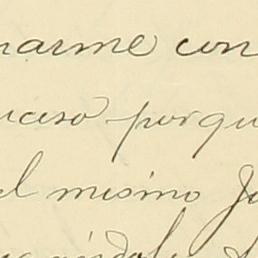 narme con
uceso porqu
el mismo Ju